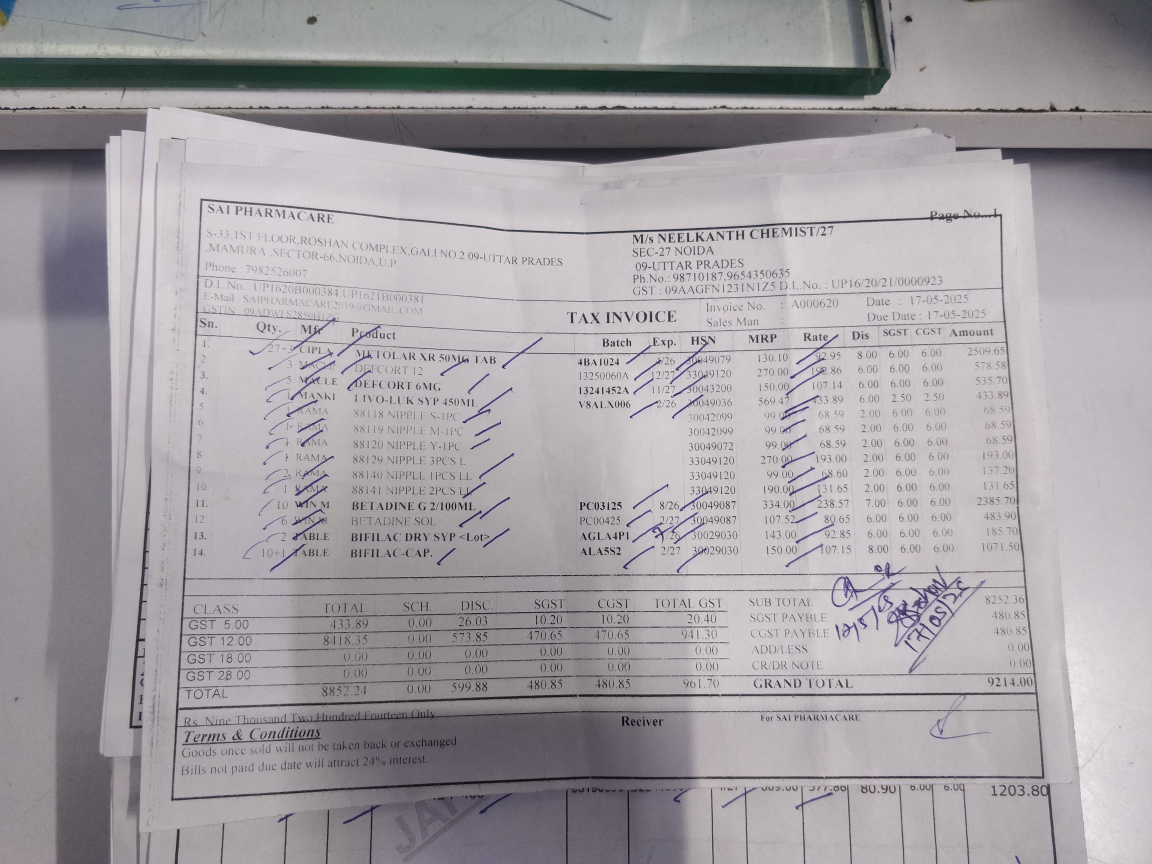 SAI PHARMACARE
S-33,1ST FLOOR,ROSHAN COMPLEX,GALI NO.2 09-UTTAR PRADES
,MAMURA ,SECTOR-66,NOIDA,U.P.
Phone : 7982526007
D.L.No. : UP1620B000384,UP1621B000381
E-Mail : SAIPHARMACARE2019@GMAIL.COM
GSTIN :
Page No...1
M/s NEELKANTH CHEMIST/27
SEC-27 NOIDA
09-UTTAR PRADES
Ph.No.: 98710187,9654350635
GST : 09AAGFN1231N1Z5 D.L.No. : UP16/20/21/0000923
TAX INVOICE
Invoice No. : A000620 Date : 17-05-2025
Sales Man : Due Date : 17-05-2025
Sn. Qty. Mfr. Product Batch Exp. HSN MRP Rate Dis SGST CGST Amount
1. CIPLA METOLAR XR 50MG TAB 4BA1024 30049079 130.10 92.95 8.00 6.00 6.00 2509.65
2. 3 MACLE DEFCORT 12 13250060A 12/27 33049120 270.00 192.86 6.00 6.00 6.00 578.58
3. 5 MACLE DEFCORT 6MG 13241452A 11/27 30043200 150.00 107.14 6.00 6.00 535.70
4. 1 MANKI LIVO-LUK SYP 450ML V8ALX006 2/26 30049036 569.47 433.89 6.00 2.50 2.50 433.89
5. RAMA 88118 NIPPLE S-1PC 30042099 99.00 68.59 2.00 6.00 6.00 68.59
6. 1 RAMA 88119 NIPPLE M-1PC 30042099 99.00 68.59 2.00 6.00 6.00 68.59
7. RAMA 88120 NIPPLE Y-1PC 30049072 99.00 68.59 2.00 6.00 6.00 68.59
8 1 RAMA 88129 NIPPLE 3PCS L 33049120 270.00 193.00 2.00 6.00 6.00 193.00
9. 2 RAMA 88140 NIPPLE 1PCS LL 33049120 99.00 68.60 2.00 6.00 6.00 137.20
10. 1 RAMA 88141 NIPPLE 2PCS LL 33049120 190.00 131.65 2.00 6.00 6.00 131.65
11. 10 WIN M BETADINE G 2/100ML PC03125 8/26 30049087 334.00 238.57 7.00 6.00 6.00 2385.70
12 6 WIN M BETADINE SOL PC00425 2/27 30049087 107.52 80.65 6.00 6.00 6.00 483.90
13. 2 TABLE BIFILAC DRY SYP <Lot> AGLA4P1 7/26 30029030 143.00 92.85 6.00 6.00 6.00 185.70
14. 10+1 TABLE BIFILAC-CAP. ALA5S2 2/27 30029030 150.00 107.15 8.00 6.00 6.00 1071.50
CLASS TOTAL SCH. DISC. SGST CGST TOTAL GST
GST 5.00 433.89 0.00 26.03 10.20 10.20 20.40
GST 12.00 8418.35 0.00 573.85 470.65 470.65 941.30
GST 18.00 0.00 0.00 0.00 0.00 0.00 0.00
GST 28.00 0.00 0.00 0.00 0.00 0.00 0.00
TOTAL 8852.24 0.00 599.88 480.85 480.85 961.70
SUB TOTAL 8252.36
SGST PAYBLE 480.85
CGST PAYBLE 480.85
ADD/LESS 0.00
CR/DR NOTE 0.00
GRAND TOTAL 9214.00
17/05/25
Rs. Nine Thousand Two Hundred Fourteen Only
Reciver
For SAI PHARMACARE
Terms & Conditions
Goods once sold will not be taken back or exchanged.
Bills not paid due date will attract 24% interest.
577.86 80.90 6.00 6.00 1203.80